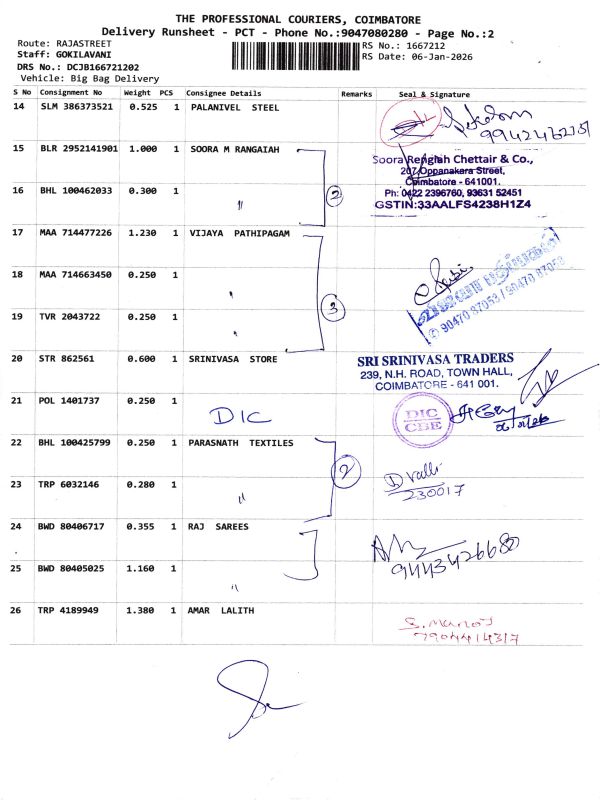 THE PROFESSIONAL COURIERS, COIMBATORE
Delivery Runsheet - PCT - Phone No.:9047080280 - Page No.:2
Route: RAJASTREET
Staff: GOKILAVANI
DRS No.: DCJB166721202
Vehicle: Big Bag Delivery
RS No.: 1667212
RS Date: 06-Jan-2026
S No Consignment No Weight PCS Consignee Details Remarks Seal & Signature
14 SLM 386373521 0.525 1 PALANIVEL STEEL
15 BLR 2952141901 1.000 1 SOORA M RANGAIAH
Soora Rengiah Chettair & Co.,
207 Oppanakara Street,
Coimbatore - 641001.
Ph: 0422 2396760, 93631 52451
GSTIN:33AALFS4238H1Z4
16 BHL 100462033 0.300 1 〃
2
17 MAA 714477226 1.230 1 VIJAYA PATHIPAGAM
18 MAA 714663450 0.250 1 〃
3
விஜயா பதிப்பகம்
✆ 90470 87053 / 90470 87058
19 TVR 2043722 0.250 1 〃
20 STR 862561 0.600 1 SRINIVASA STORE
SRI SRINIVASA TRADERS
239, N.H. ROAD, TOWN HALL,
COIMBATORE - 641 001.
21 POL 1401737 0.250 1 DIC
DIC
CBE
22 BHL 100425799 0.250 1 PARASNATH TEXTILES
2
D valli
230017
23 TRP 6032146 0.280 1 〃
24 BWD 80406717 0.355 1 RAJ SAREES
9443426680
25 BWD 80405025 1.160 1 〃
26 TRP 4189949 1.380 1 AMAR LALITH
S. Manoj
7904414317